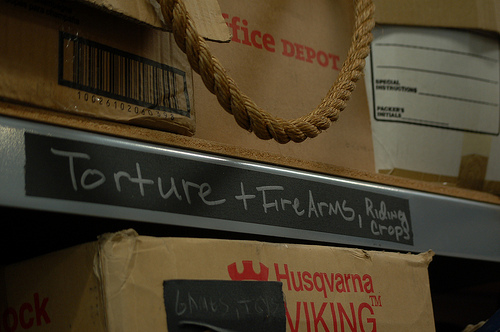 Office DEPOT
SPECIAL
INSTRUCTIONS
PACKER'S
INITIALS
Torture + FireArms, Riding
Crops
Husqvarna
VIKING™
GAMES, TOYS
ock